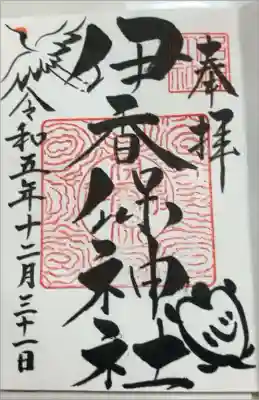 奉拝
伊香保神社
令和五年十二月三十一日